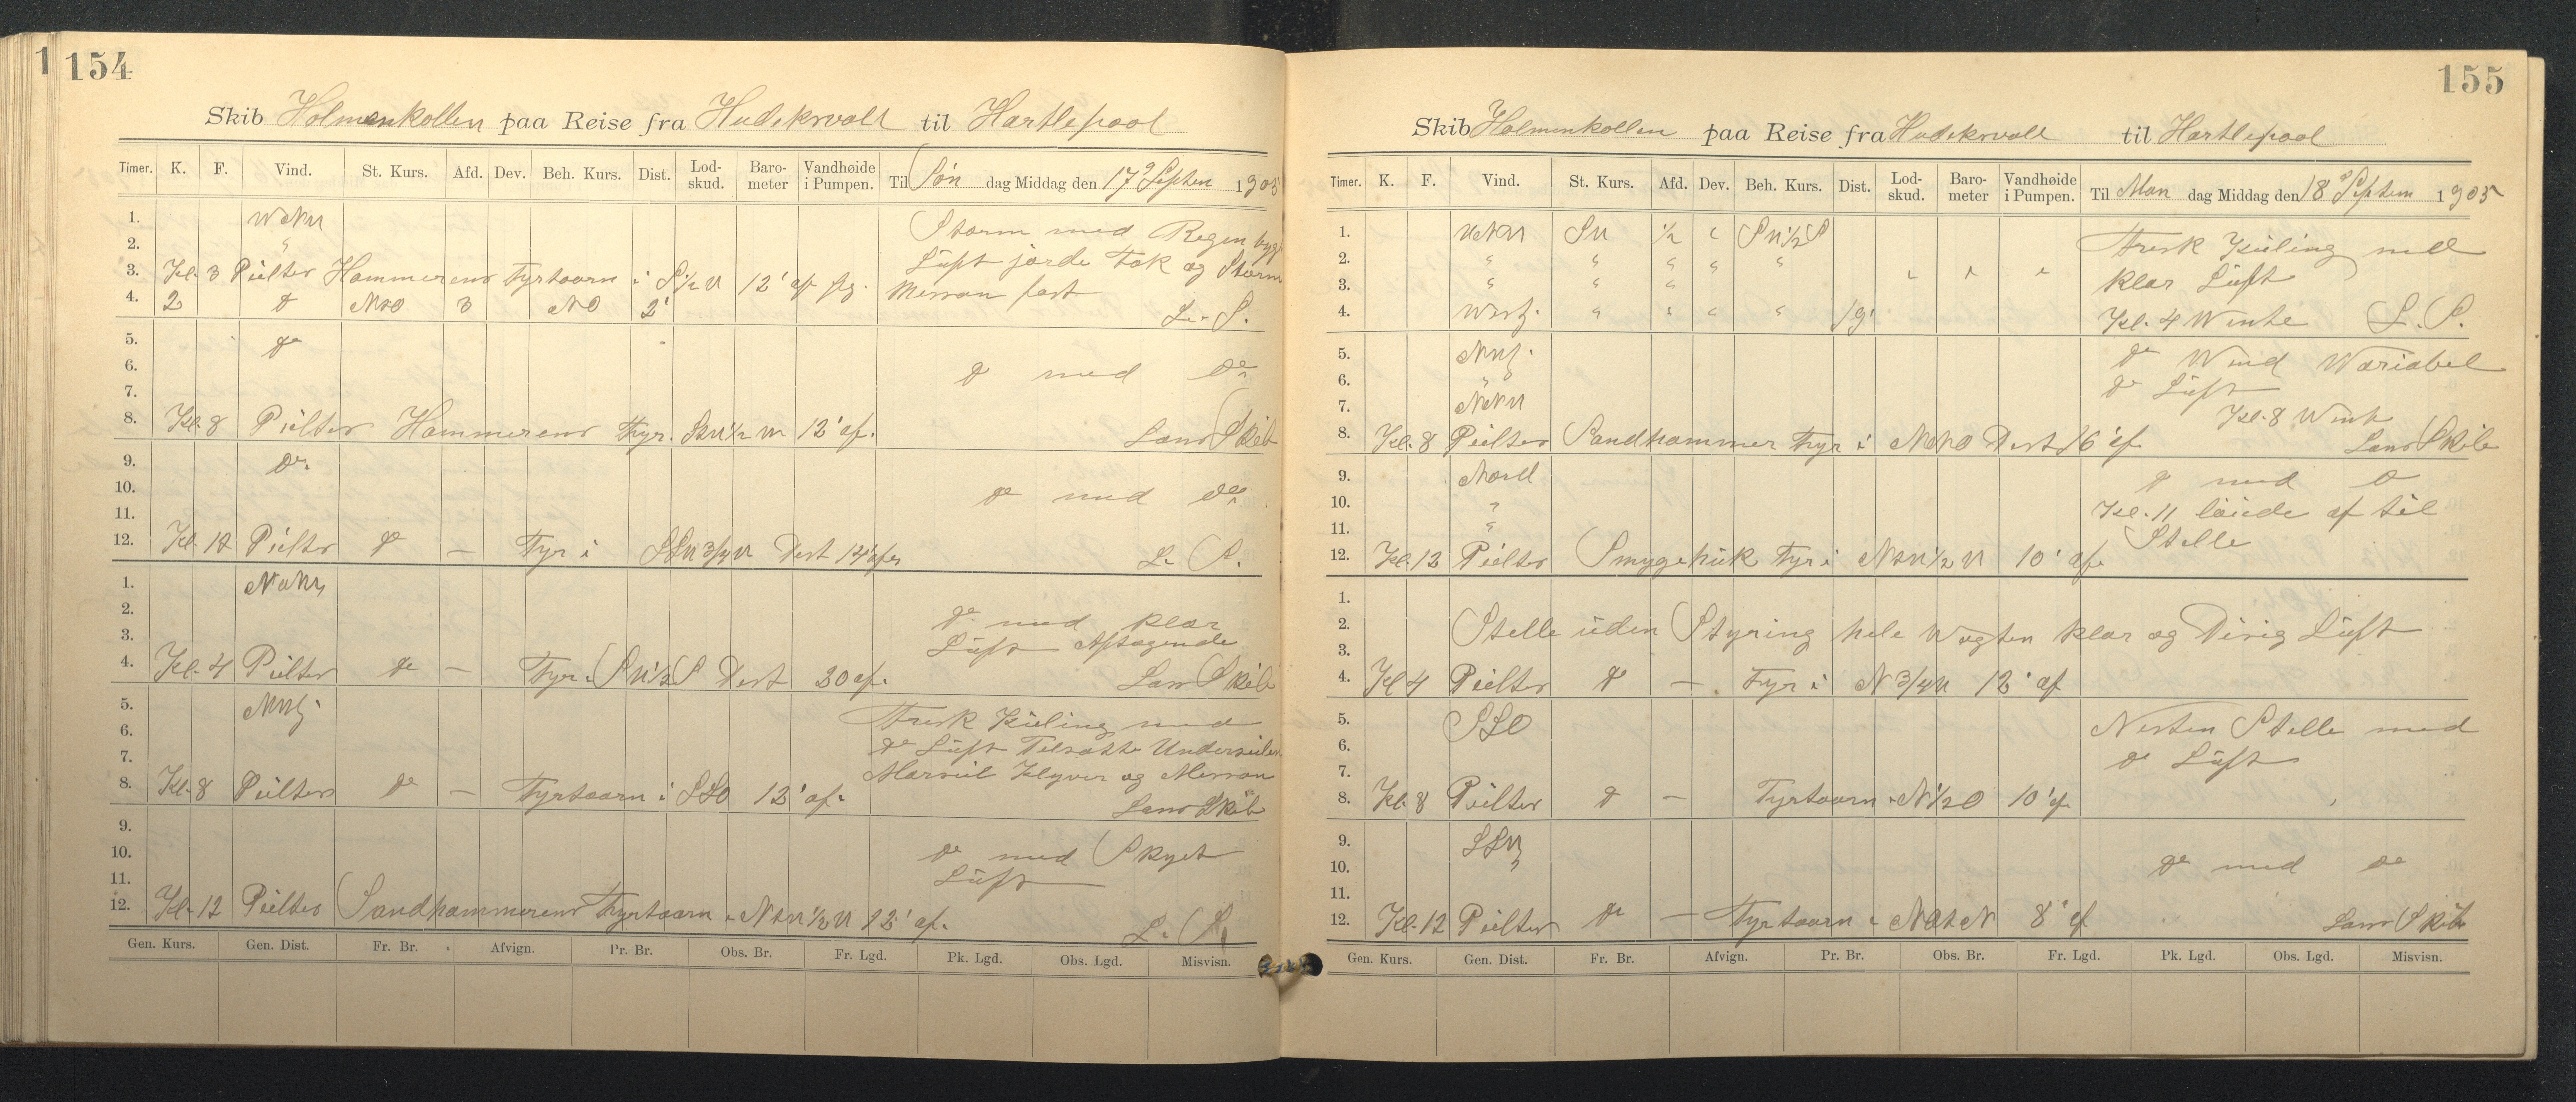 1
154
Skib Holmenkollen paa Reise fra Hudiksvall til Hartlepool
Timer. K. F. Vind. St. Kurs. Afd. Dev. Beh. Kurs. Dist. Lod-skud. Baro-meter Vandhøide i Pumpen. Til Søn dag Middag den 17de Septem 1905
1. Storm med Regen byge
2. Luft jorde Tok og Storm
3. Kl. 3 Peilter Hammerens Fyrtaarn i S 1/2 V 12' af
4. 2 do NNO 3 NO 2' Messan fast L. S.
5. do
6. do med do
7.
8. Kl. 8 Peilter Hammerens Fyr. 12' af. Lans Skib
9. do
10. do med do
11.
12. Kl. 12 Peilter do — Fyr i SSV 3/4 V Dist 14' af L. S.
1.
2. do med klar
3. Luft Aftagende
4. Kl. 4 Peilter do — Fyr i SV 1/2 S Dist 30 af. Lans Skib
5. Frisk Kuling med
6. do Luft Tilsatte Underseiler
7. Marseil Klyver og Messan
8. Kl. 8 Peilter do — Fyrtaarn i SSO 12' af. Lans Skib
9.
10. do med Skyet
11. Luft
12. Kl. 12 Peilter Sandhammerens Fyrtaarn i 12' af. L. S.
Gen. Kurs. Gen. Dist. Fr. Br. Afvign. Pr. Br. Obs. Br. Fr. Lgd. Pk. Lgd. Obs. Lgd. Misvisn.
155
Skib Holmenkollen paa Reise fra Hudiksvall til Hartlepool
Timer. K. F. Vind. St. Kurs. Afd. Dev. Beh. Kurs. Dist. Lod-skud. Baro-meter Vandhøide i Pumpen. Til Man dag Middag den 18de Septem 1905
1. SV 1/2 " SV 1/2 S Frisk Kuling med
2. " " " " "
3. " " " klar Luft
4. West. " " " " 19' Kl. 4 Wente L. S.
5. do Wind Wariabel
6. " do Luft
7. Kl. 8 Went
8. Kl. 8 Peilter Sandhammer Fyr i Dist 16' af Lans Skib
9. Nord do med do
10. " Kl. 11 løiede af til
11. " Stelle
12. Kl. 12 Peilter Smygehuk Fyr i 10' af
1.
2. Stelle uden Styring hele Wagten klar og Disig Luft
3.
4. Kl 4 Peilter do — Fyr i N 3/4 V 12' af
5. SSO Nesten Stelle med
6. do Luft
7.
8. Kl. 8 Peilter do — Fyrtaarn i N 1/2 O 10' af
9. SSV
10. " do med do
11.
12. Kl. 12 Peilter do — Fyrtaarn i NOtN 8' af Lans Skib
Gen. Kurs. Gen. Dist. Fr. Br. Afvign. Pr. Br. Obs. Br. Fr. Lgd. Pk. Lgd. Obs. Lgd. Misvisn.